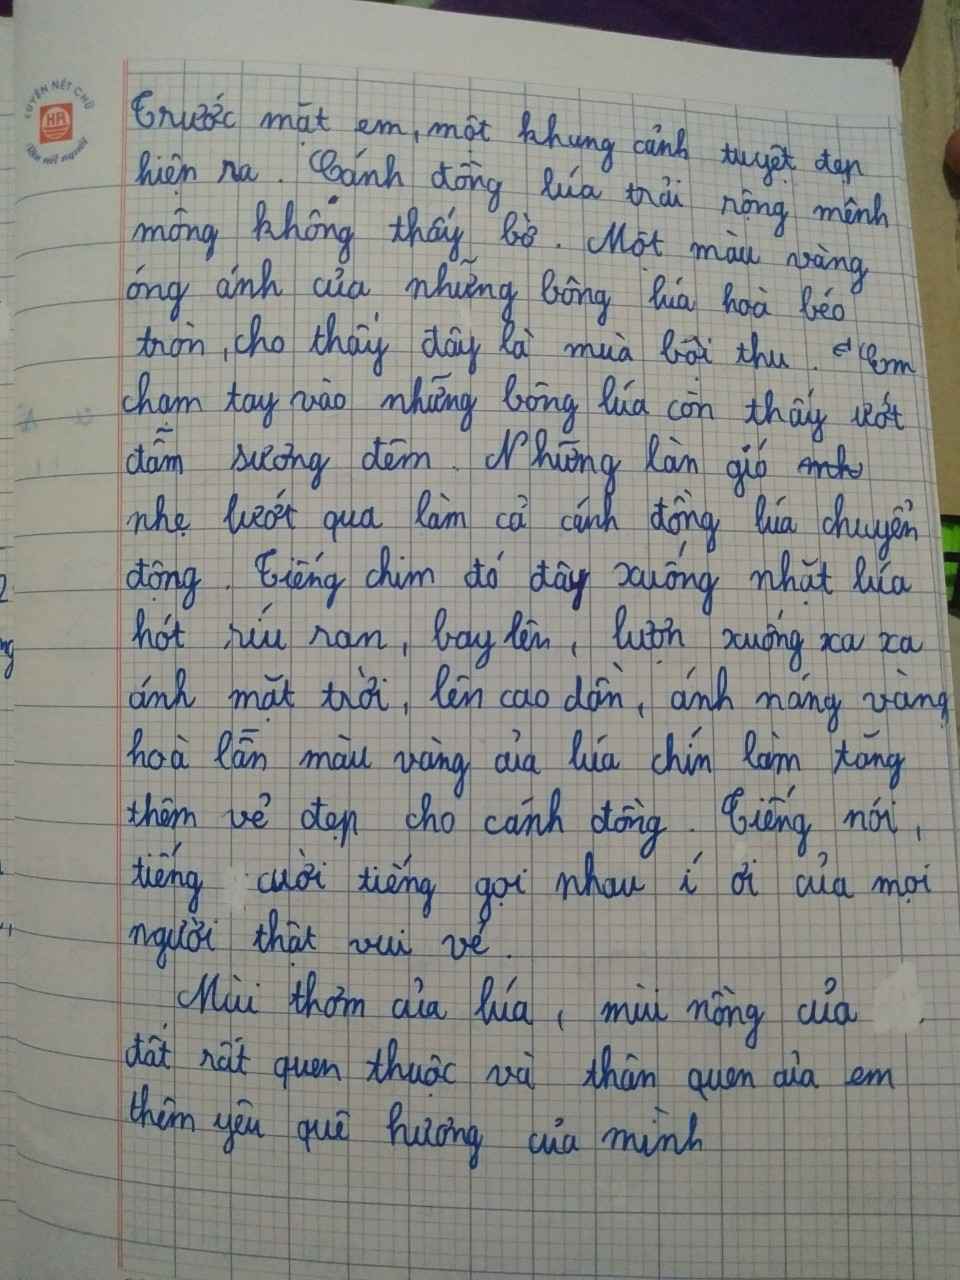 LUYỆN NÉT CHỮ
HA
Trước mặt em, một khung cảnh tuyệt đẹp
hiện ra. Cánh đồng lúa trải rộng mênh
mông không thấy bờ. Một màu vàng
óng ánh của những bông lúa hoà béo
tròn, cho thấy đây là mùa bội thu. Em
chạm tay vào những bông lúa còn thấy ướt
đẫm sương đêm. Những làn gió
nhẹ lướt qua làm cả cánh đồng lúa chuyển
động. Tiếng chim đó đây xuống nhặt lúa
hót ríu ran, bay lên, lượn xuống xa xa
ánh mặt trời, lên cao dần, ánh náng vàng
hoà lẫn màu vàng của lúa chín làm tăng
thêm vẻ đẹp cho cánh đồng. Tiếng nói,
tiếng cười tiếng gọi nhau í ới của mọi
người thật vui vẻ.
Mùi thơm của lúa, mùi nồng của
đất rất quen thuộc và thân quen của em
thêm yêu quê hương của mình